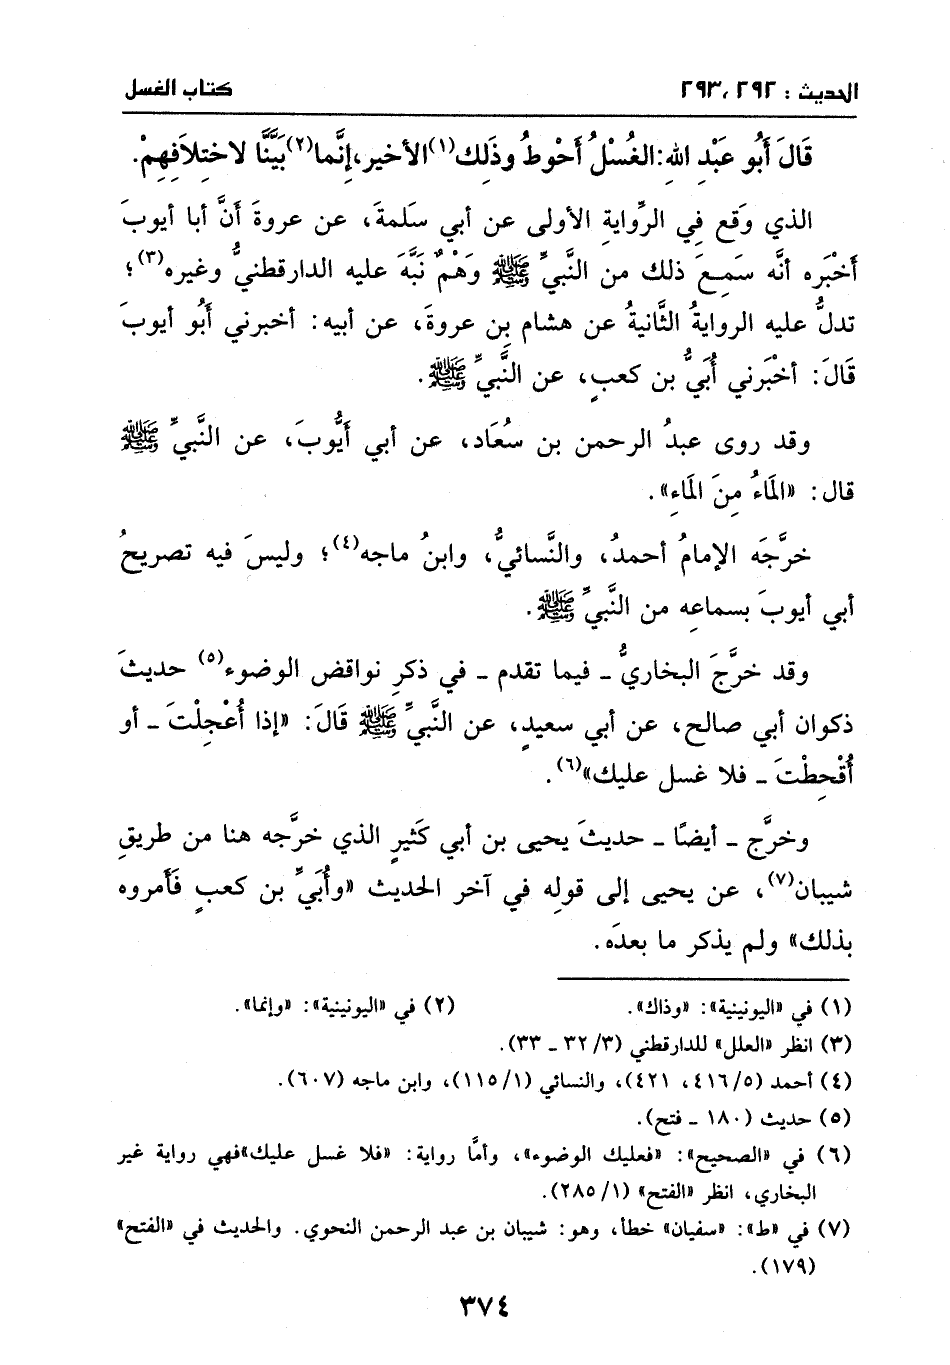 الحديث : ٢٩٢، ٢٩٣ كتاب الغسل
قَالَ أَبُو عَبْدِ اللهِ: الغُسْلُ أَحْوطُ وذَلِك(١) الأخير، إنَّما(٢) بَيَّنَّا لاختِلاَفِهِمْ.
الذي وَقع فِي الرِّوايةِ الأولى عن أبي سَلمةَ، عن عروةَ أنَّ أبا أيوبَ
أَخْبَره أنَّه سَمِعَ ذلك من النَّبيِّ ﷺ وَهْمٌ نَبَّهَ عليه الدارقطنيُّ وغيره(٣)؛
تدلُّ عليه الروايةُ الثَّانيةُ عن هشام بن عروةَ، عن أبيه: أخبرني أَبُو أيوبَ
قَالَ: أخْبَرني أُبَيُّ بن كعبٍ، عن النَّبيِّ ﷺ.
وقد روى عبدُ الرحمن بن سُعَاد، عن أبي أَيُّوبَ، عن النَّبيِّ ﷺ
قال: «المَاءُ مِنَ المَاءِ».
خرَّجَه الإمامُ أحمدُ، والنَّسائيُّ، وابنُ ماجه(٤)؛ وليسَ فيه تصريحُ
أبي أيوبَ بسماعِه من النَّبيِّ ﷺ.
وقد خرَّجَ البخاريُّ ـ فيما تقدم ـ في ذكرِ نواقض الوضوء(٥) حديثَ
ذكوان أبي صالح، عن أبي سعيدٍ، عن النَّبيِّ ﷺ قَالَ: «إذا أُعْجِلْتَ ـ أو
أُقْحِطْتَ ـ فلا غسل عليك»(٦).
وخرَّج ـ أيضًا ـ حديثَ يحيى بن أبي كَثيرٍ الذي خرَّجه هنا من طريقِ
شيبان(٧)، عن يحيى إلى قوله في آخر الحديث «وأُبَيِّ بن كعبٍ فَأَمروه
بذلك» ولم يذكر ما بعدَه.
(١) في «اليونينية»: «وذاك». (٢) في «اليونينية»: «وإنما».
(٣) انظر «العلل» للدارقطني (٣/ ٣٢ ـ ٣٣).
(٤) أحمد (٥/ ٤١٦، ٤٢١)، والنسائي (١/ ١١٥)، وابن ماجه (٦٠٧).
(٥) حديث (١٨٠ ـ فتح).
(٦) في «الصحيح»: «فعليك الوضوء»، وأمَّا رواية: «فلا غسل عليك»فهي رواية غير
البخاري، انظر «الفتح» (١/ ٢٨٥).
(٧) في «ط»: «سفيان» خطأ، وهو: شيبان بن عبد الرحمن النحوي. والحديث في «الفتح»
(١٧٩).
٣٧٤